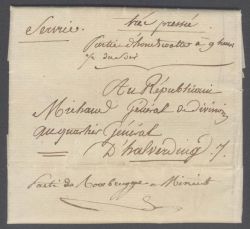 Service. très pressé
Partie d'hontscotte à 9 heures
du soir
Au Républicain
Michaud Général de Division
au quartier Général
D'halverdingh.
Partie de Rousbrugge à Minuit